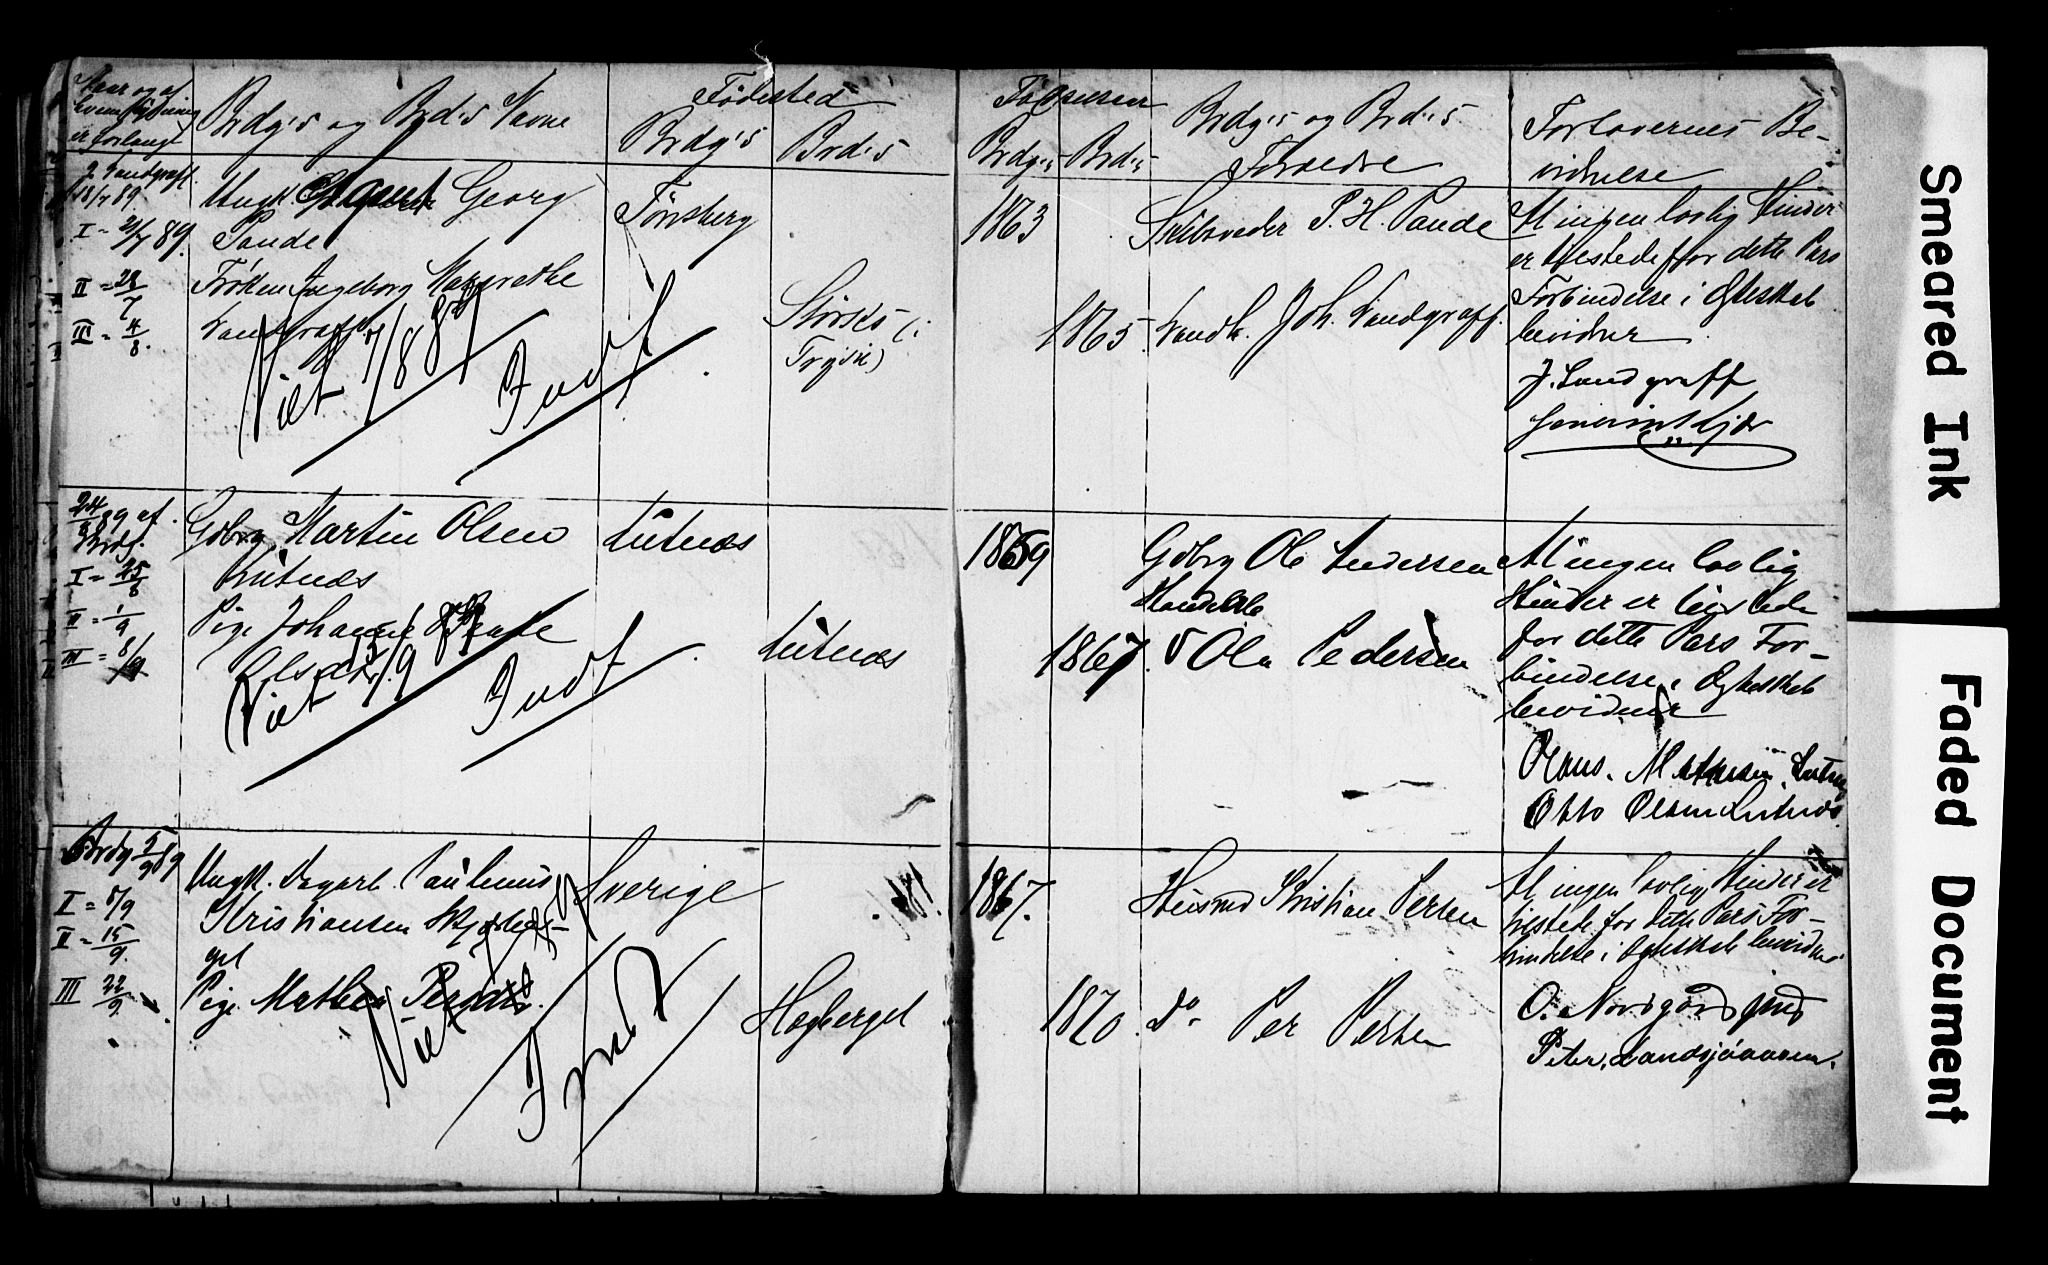 Naar og af
hvem Lysning
er forlangt
Brdg's og Brd's Navne
Fødested
Brdg's
Brd's
Fødselsaar
Brdg's Brd's
Brdg's og Brd's
Forældre
Forlovernes Be-
vidnelse
J. Landgraff.
18/7 89.
I = 21/7 89.
II = 28/7
III = 4/8.
Ungk Georg
Pande
Frøken Ingeborg Margrethe
Landgraff
Viet 7/8 89
Indt
Tønsberg
Storses (i
Trysil)
1863
1865.
Skibsreder P. H. Pande
Landh. Joh. Landgraff.
At ingen lovlig Hinder
er tilstede for dette Pars
Forbindelse i Egteskab
bevidner
J. Landgraff
24/8 89 af
Brdg.
I = 25/8
II = 1/9
III = 8/9
Gdbrg Martin Olsen
Lutnæs
Pige Johanne
Olsdtr
Viet 13/9 89
Indt
Lutnæs
Lutnæs
1859
1867.
Gdbrg Ole Andersen
Ola Pedersen
At ingen lovlig
Hinder er tilstede
for dette Pars For-
bindelse i Egteskab
bevidner
Olaus Mathisen Lutnæs
Otto Olsen Lutnæs
Brdg 5/9 89
I = 8/9
II = 15/9.
III 22/9.
Ungk. Dagart Paulinus
Kristiansen
Pige Mathea Persdtr.
Viet
Indt
Sverige
Hogberget
1867.
1870.
Husmd Kristian Persen
do Per Persen
At ingen lovlig Hinder er
tilstede for dette Pars For-
bindelse i Egteskab bevidner
O. Nordgård
Peter Landsjøaasen.
Smeared Ink
Faded Document